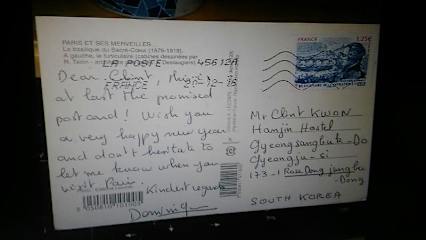 PARIS ET SES MERVEILLES
La basilique du Sacré-Cœur (1876-1919).
A gauche, le funiculaire (cabines dessinées par
LA POSTE 45612A
FRANCE 20-12-16
Dear Clint, this is
at last the promised
postcard! Wish you
a very happy new year
and don't hesitate to
let me know when you
visit Paris
Kindest regards
Dominique
FRANCE
1,25€
Mr Clint KWON
Hanjin Hostel
Gyeongsangbuk-Do
Gyeongju-si
173-1 Rose Dong jungbu-
Dong
SOUTH KOREA